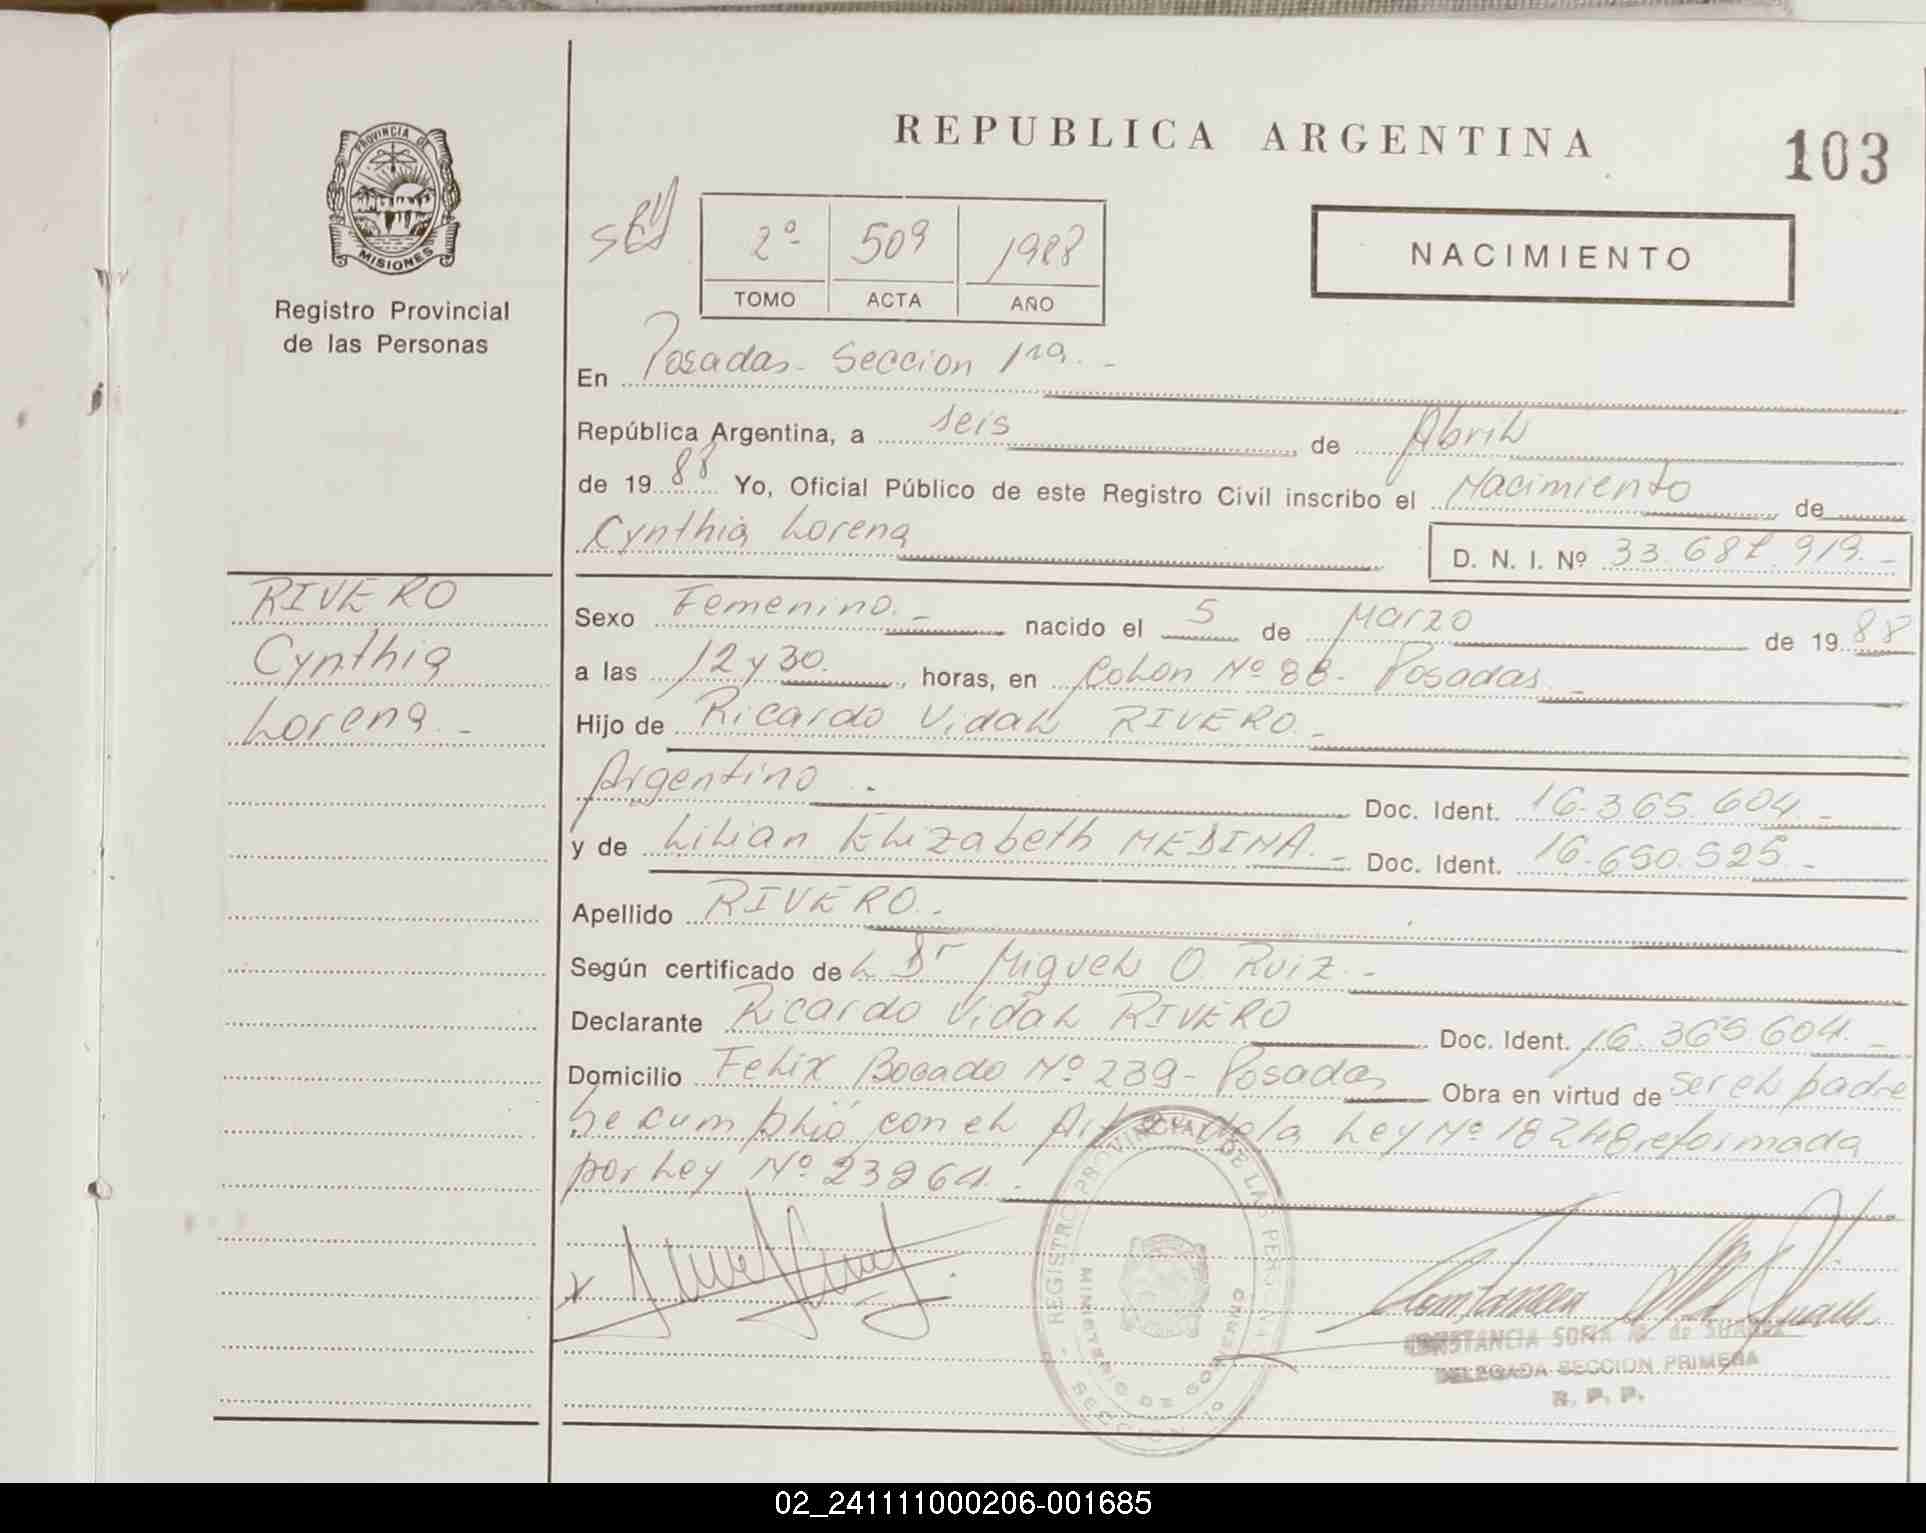 REPUBLICA ARGENTINA
103
PROVINCIA DE
MISIONES
Registro Provincial
de las Personas
2º 509 1988
TOMO ACTA AÑO
NACIMIENTO
En Posadas - Seccion 1ra. -
República Argentina, a seis de Abril
de 1988 Yo, Oficial Público de este Registro Civil inscribo el Nacimiento de
Cynthia Lorena
D. N. I. Nº 33.687.919.-
RIVERO
Cynthia
Lorena. -
Sexo Femenino. - nacido el 5 de Marzo de 1988
a las 12 y 30. horas, en Colon Nº 88 - Posadas. -
Hijo de Ricardo Vidal RIVERO. -
Argentino. Doc. Ident. 16.365.604. -
y de Lilian Elizabeth MEDINA. - Doc. Ident. 16.650.525 -
Apellido RIVERO. -
Según certificado del Dr Miguel O. Ruiz. -
Declarante Ricardo Vidal RIVERO Doc. Ident. 16.365.604. -
Domicilio Felix Bogado Nº 239 - Posadas Obra en virtud de ser el padre
Se cumplió con el Art de la Ley Nº 18248 reformada
por Ley Nº 23264. -
REGISTRO PROVINCIAL DE LAS PERSONAS
MINISTERIO DE GOBIERNO
SECCION 1º
CONSTANCIA SOFIA de SUAREZ
DELEGADA SECCION PRIMERA
R. P. P.
02_241111000206-001685